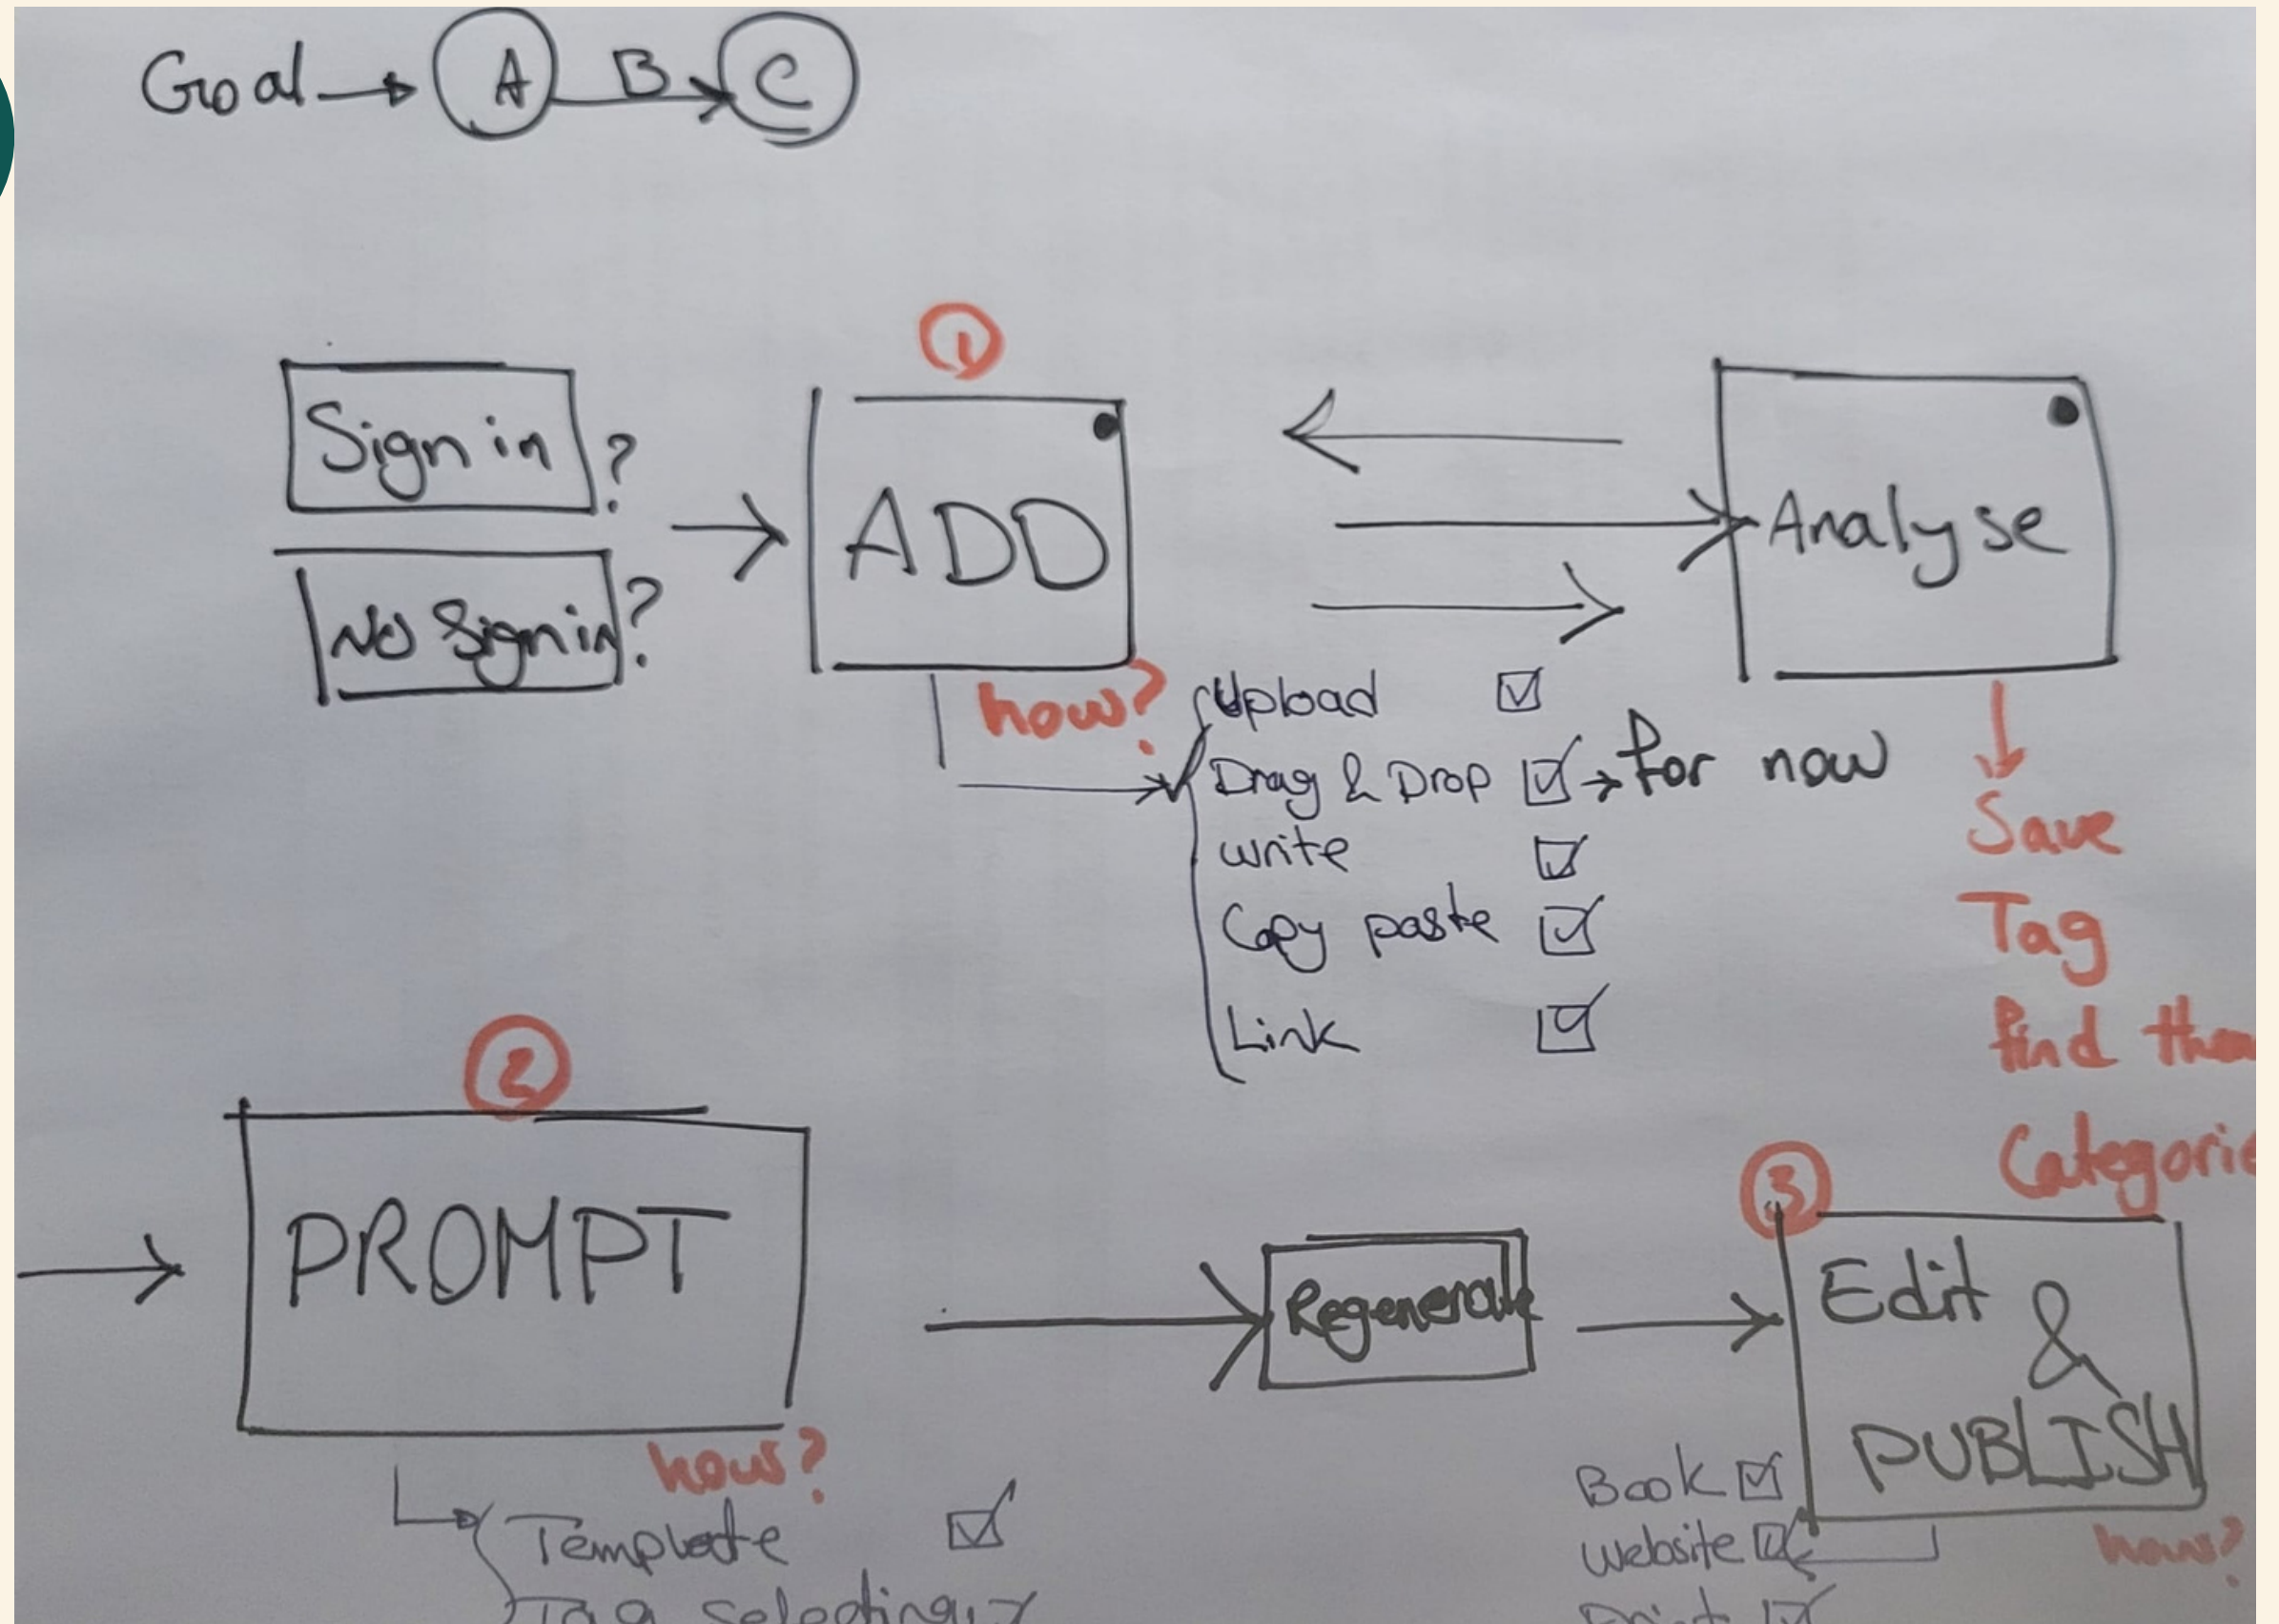 Goal → A B → C
①
Sign in ?
No Sign in ?
ADD
Analyse
how?
Upload ☑
Drag & Drop ☑ → for now
write ☑
Copy paste ☑
Link ☑
Save
Tag
find
②
PROMPT
Regenerate
③
Edit
&
PUBLISH
how?
Template ☑
Tag selecting
Book ☑
website ☑
how?